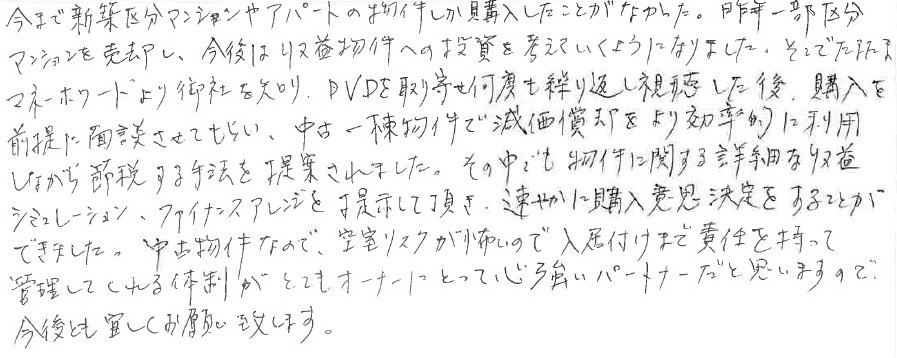 今まで新築区分マンションやアパートの物件しか購入したことがなかった。昨年一部区分
マンションを売却し、今後は収益物件への投資を考えていくようになりました。そこでたまたま
マネーホワードより御社を知り、DVDを取り寄せ何度も繰り返し視聴した後、購入を
前提に面談させてもらい、中古一棟物件で減価償却をより効率的に利用
しながら節税する手法を提案されました。その中でも物件に関する詳細な収益
シミュレーション、ファイナンスアレンジを提示して頂き、速やかに購入意思決定をすることが
できました。中古物件なので、空室リスクが怖いので入居付けまで責任を持って
管理してくれる体制がとてもオーナーにとって心強いパートナーだと思いますので、
今後とも宜しくお願い致します。